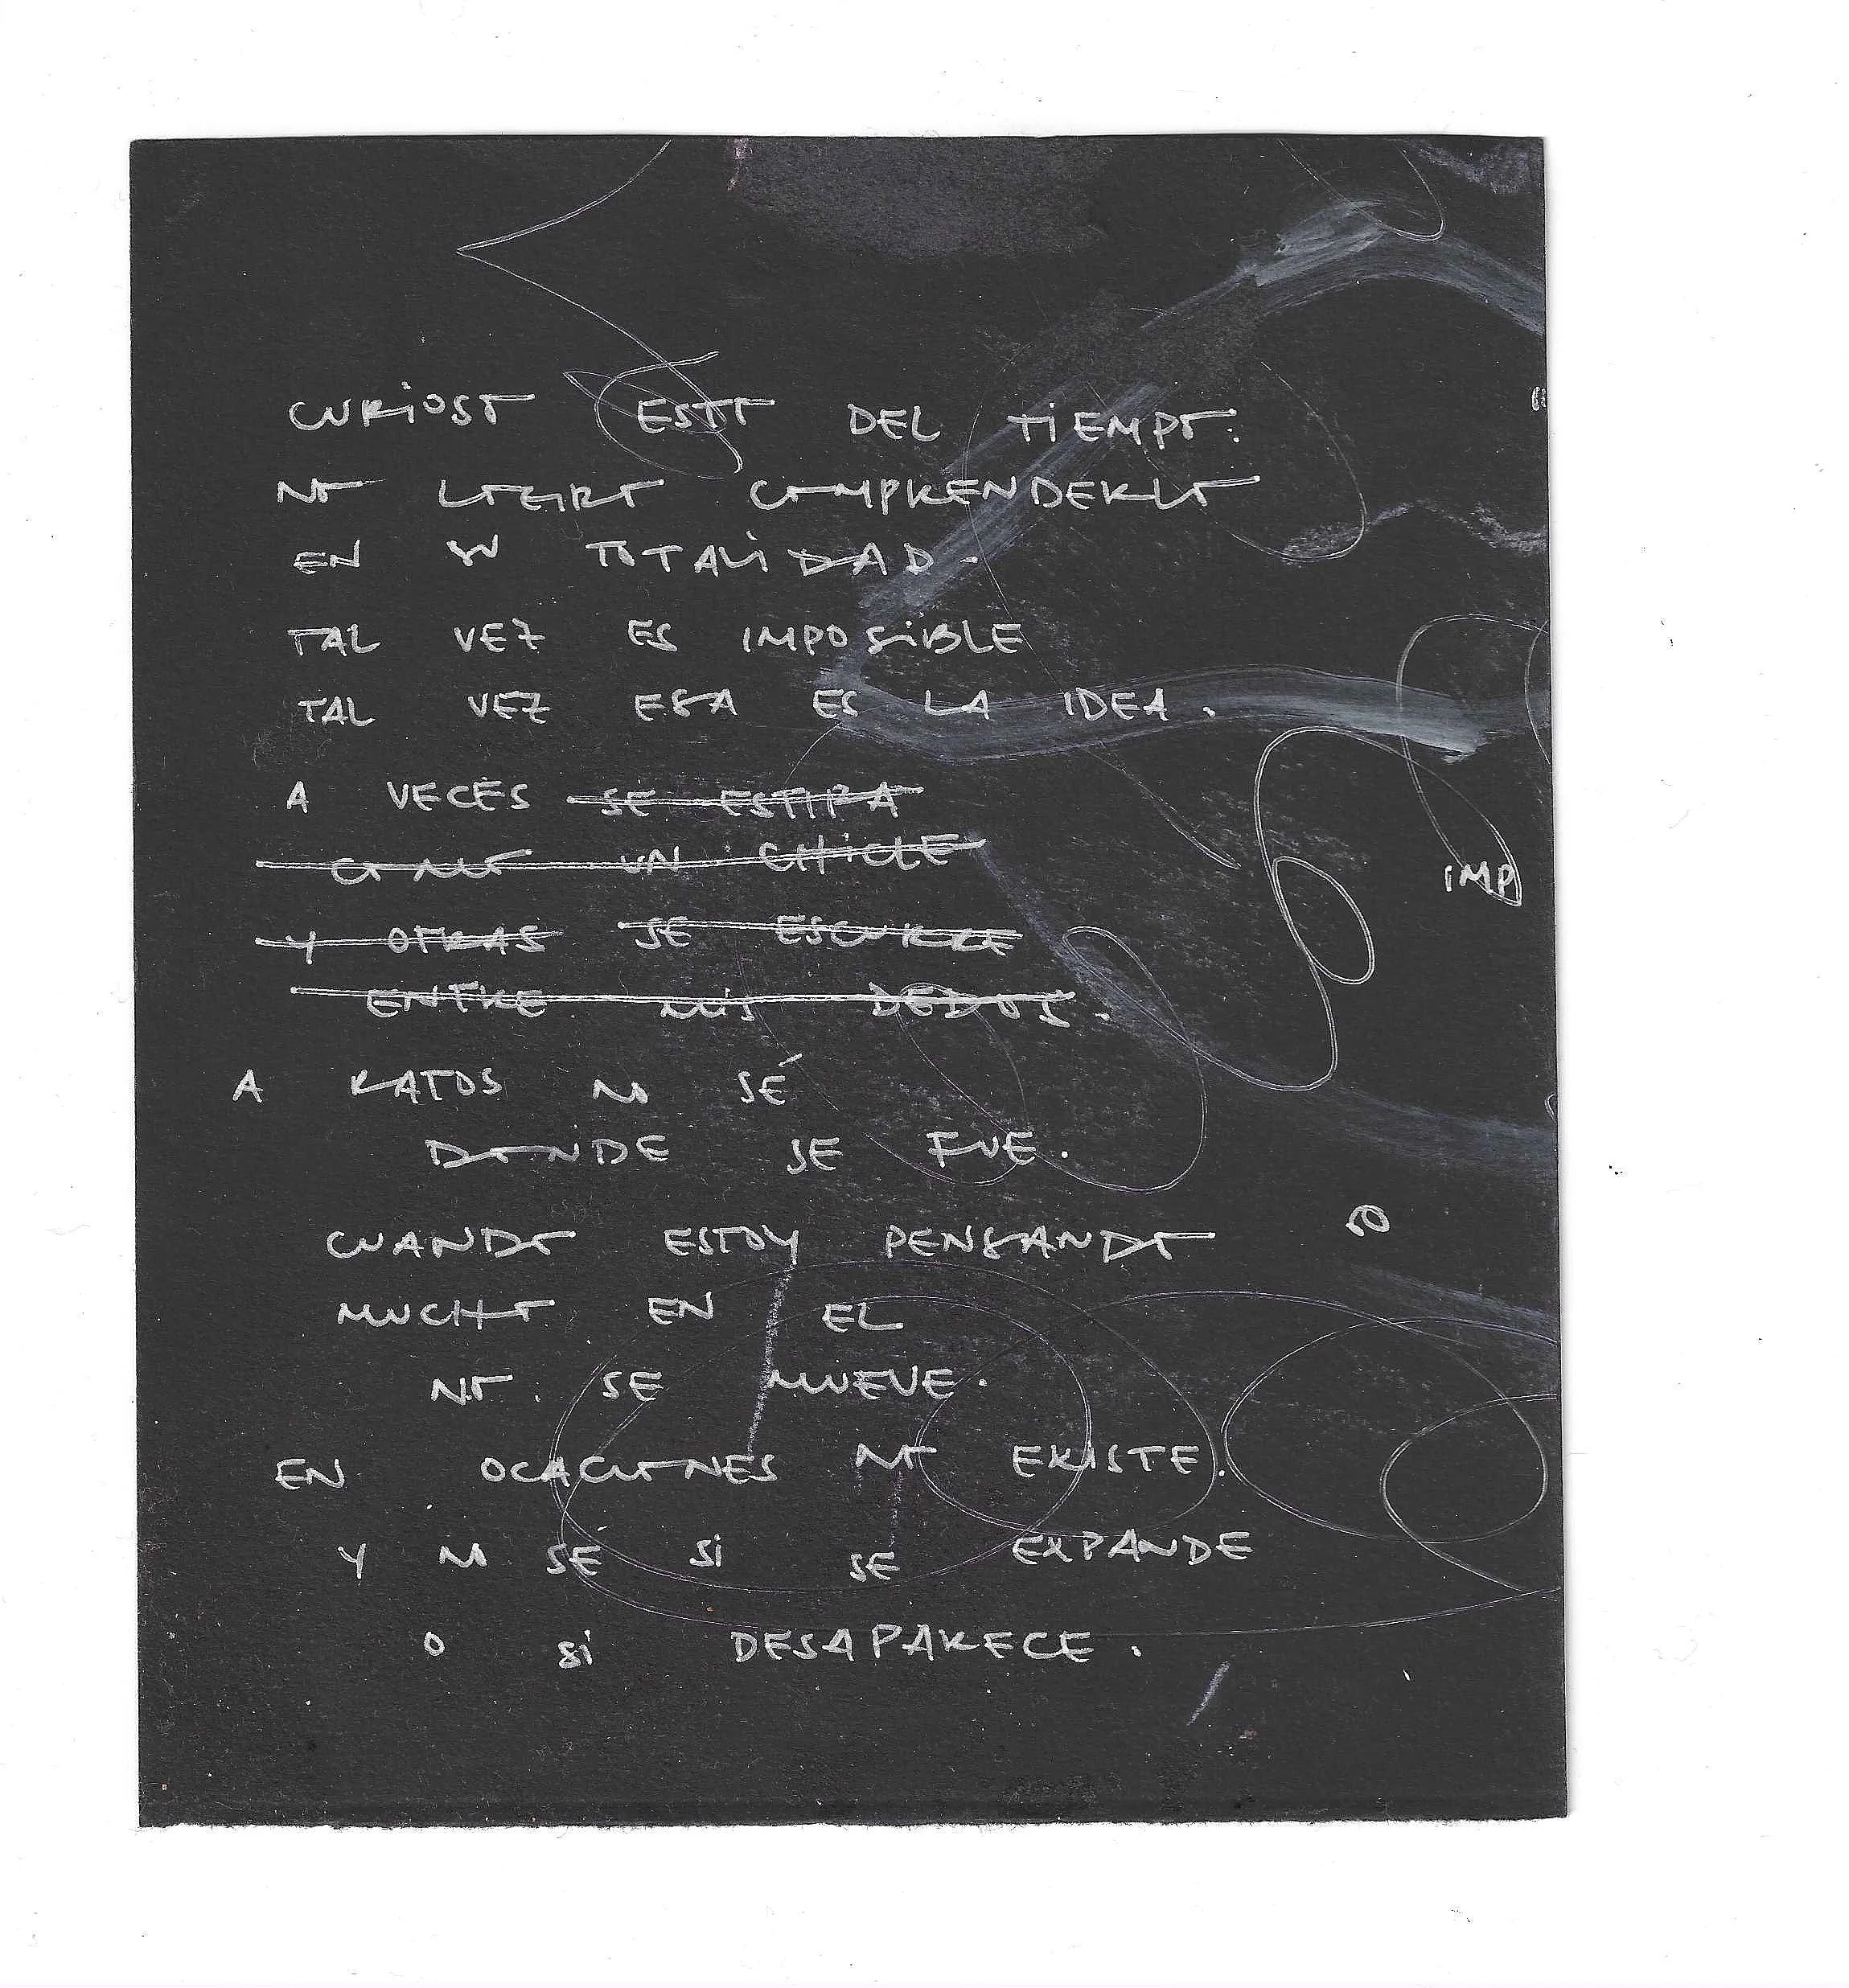 CURIOSO ESTO DEL TIEMPO:
NO LOGRO COMPRENDERLO
EN SU TOTALIDAD.
TAL VEZ ES IMPOSIBLE
TAL VEZ ESA ES LA IDEA.
A VECES SE ESTIRA
COMO UN CHICLE
Y OTRAS SE ESCURRE
ENTRE MIS DEDOS.
IMP
A RATOS NO SÉ
DONDE SE FUE.
CUANDO ESTOY PENSANDO
MUCHO EN EL
NO SE MUEVE.
EN OCACIONES NO EXISTE.
Y NO SÉ SI SE EXPANDE
O SI DESAPARECE.